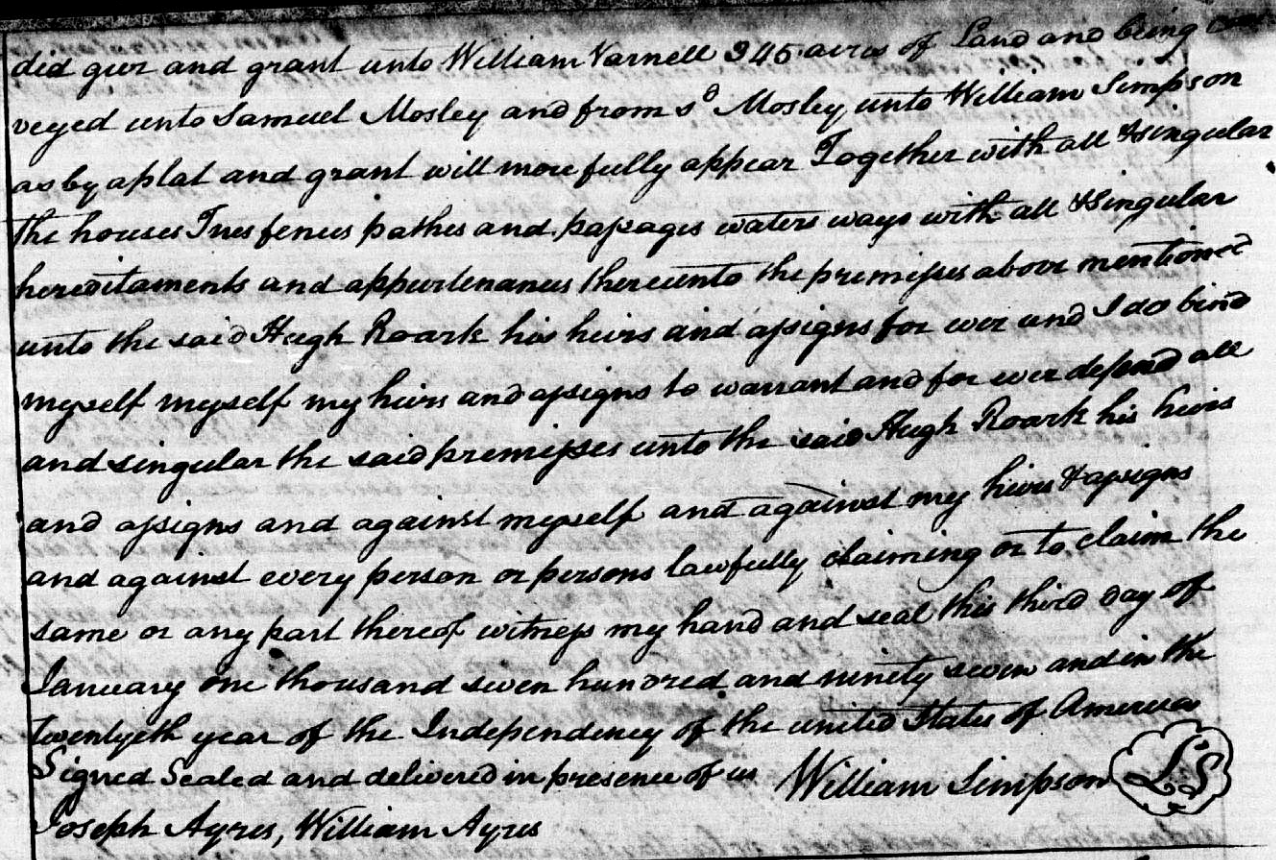 did give and grant unto William Varnell 345 acres of Land and being con
veyed unto Samuel Mosley and from sd Mosley unto William Simpson
as by a plat and grant will more fully appear Together with all & singular
the houses Trees fences pathes and passages waters ways with all & singular
hereditaments and appurtenances thereunto the premisses above mentioned
unto the said Hugh Roark his heirs and assigns for ever and I do bind
myself myself my heirs and assigns to warrant and for ever defend all
and singular the said premisses unto the said Hugh Roark his heirs
and assigns and against myself and against my heirs & assigns
and against every person or persons lawfully claiming or to claim the
same or any part thereof witness my hand and seal this third day of
January one thousand seven hundred and ninety seven and in the
twentyeth year of the Independency of the united States of America
Signed Sealed and delivered in presence of us William Simpson LS
Joseph Ayres, William Ayres